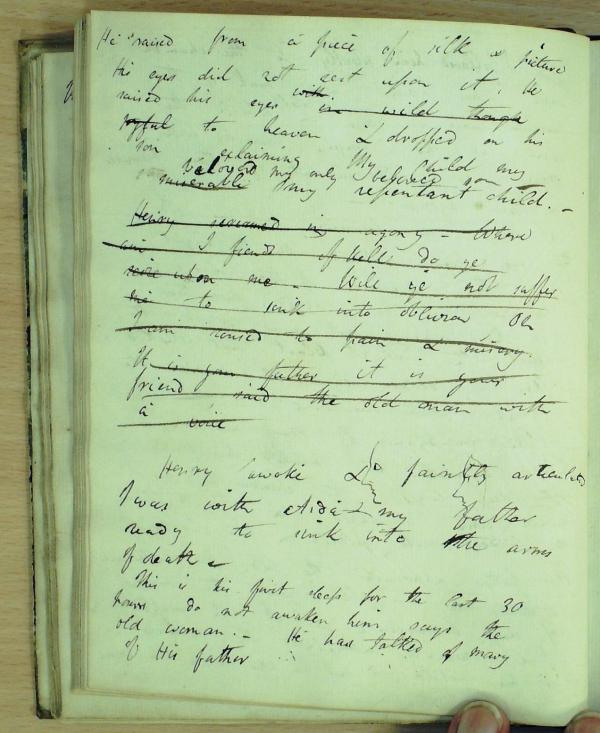 He raised from a piece of silk a picture
His eyes did not rest upon it. He
raised his eyes with in wild though
joyful to heaven & dropped on his
son exclaiming My child my
beloved my only beloved son
miserable my repentant child. –
Henry screamed in agony – Where
am I fiends of Hell do ye
seize upon me – Will ye not suffer
me to sink into oblivion Oh
I am roused to pain & misery.
It is your father it is your
friend said the old man with
a voice
Henry awoke & faintly articulated
I was with my father
ready to sink into the arms
of death –
This is his first sleep for the last 30
hours do not awaken him says the
old woman. – He has talked of mary
of His father